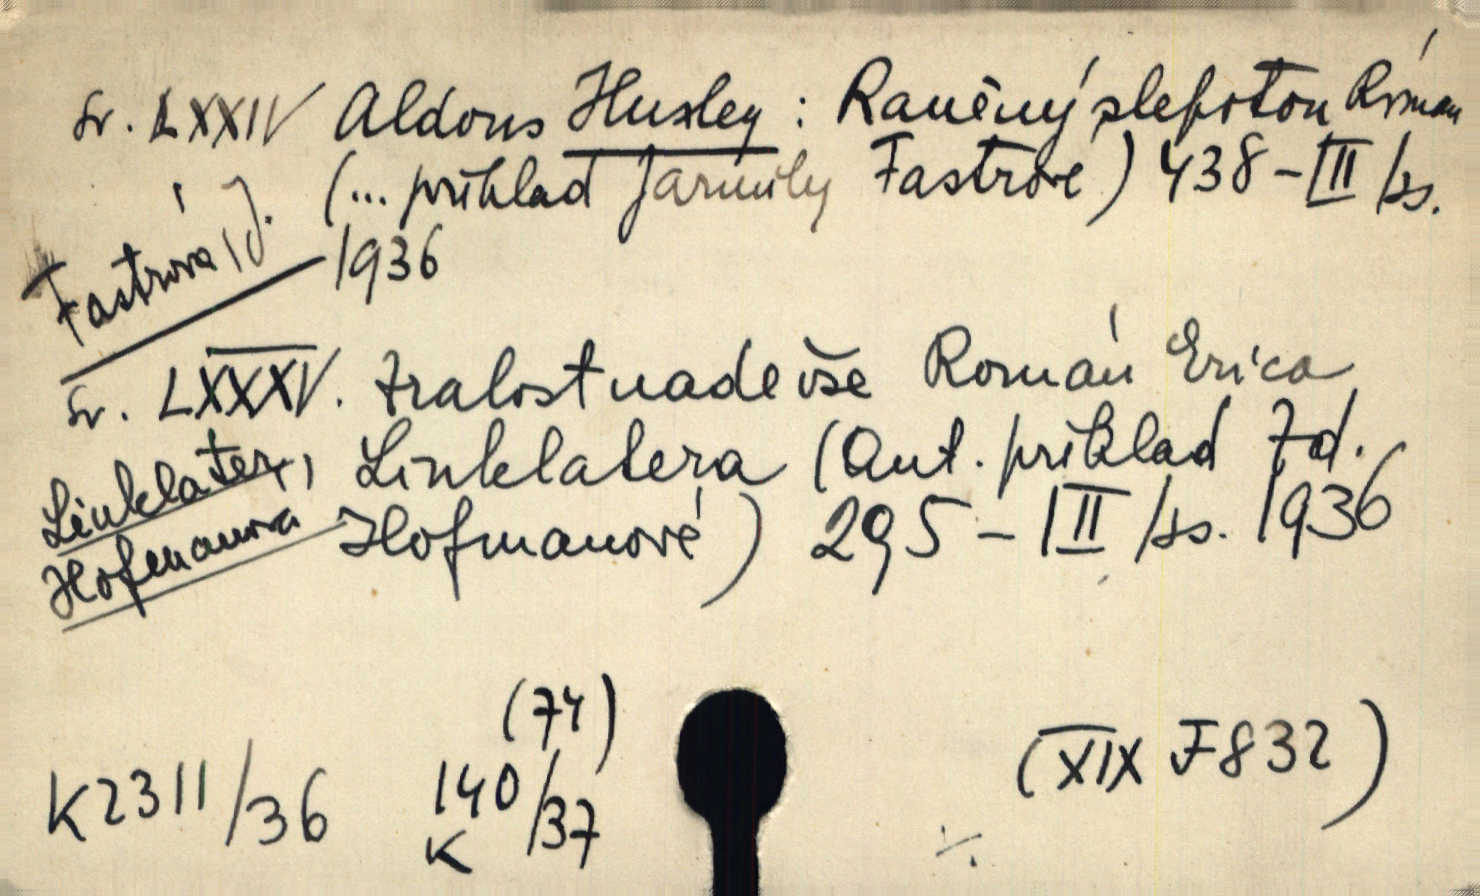 Sv. LXXIV Aldous Huxley: Raněný slepotou Román
(... příklad Jarmily Fastrové) 438-III/ss.
Fastrová, J. 1936
Sv. LXXXV. Žralost nade vše Román Erica
Linklater, Linklatera (Aut. příklad Zd.
Hofmanová Hofmanové) 295 - III/ss. 1936
(74)
K2311/36 140/37 (XIX F832)
K